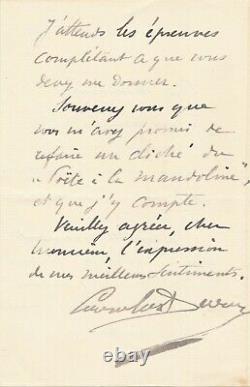 J'attends les épreuves
complétant ce que vous
devez me donner.
Souvenez vous que
vous m'avez promis de
refaire un cliché du
"Poête à la mandoline",
et que j'y compte.
Veuillez agréer, cher
Monsieur, l'expression
de mes meilleurs sentiments.
Carolus Duran